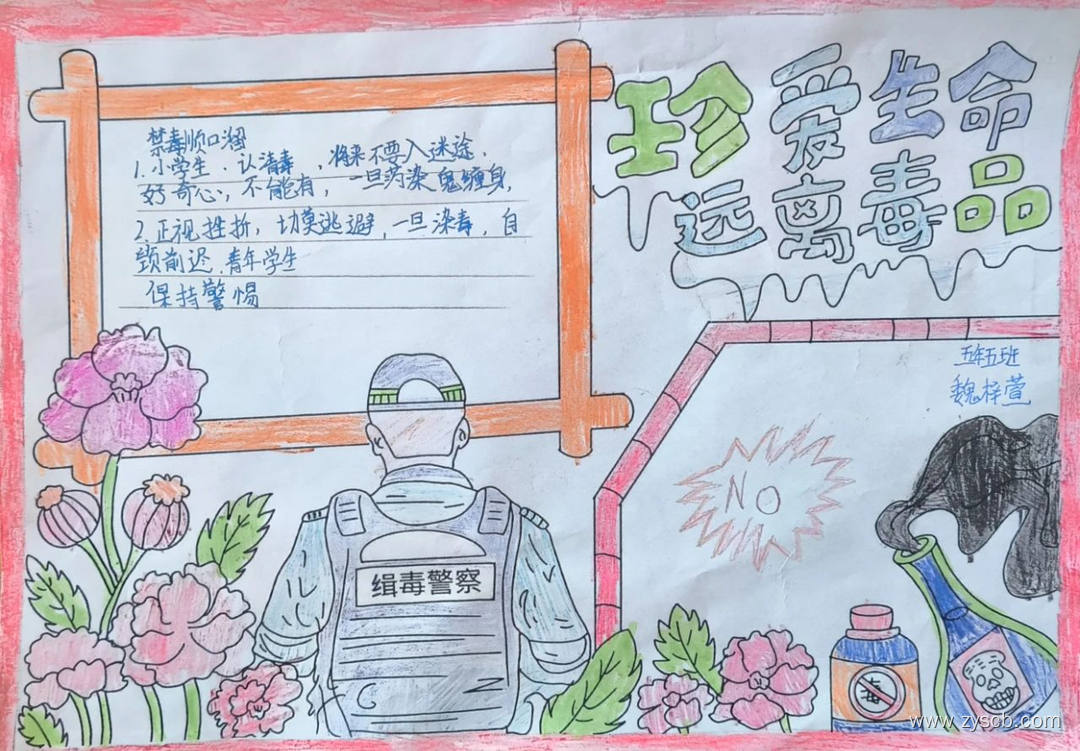 珍爱生命
远离毒品
禁毒顺口溜
1.小学生、认清毒、将来不要入迷途、
好奇心,不能有,一旦药染鬼缠身,
2.正视挫折,切莫逃避,一旦染毒,自
毁前迟,青年学生
保持警惕
五年五班
魏梓萱
NO
缉毒警察
www.zyscb.com